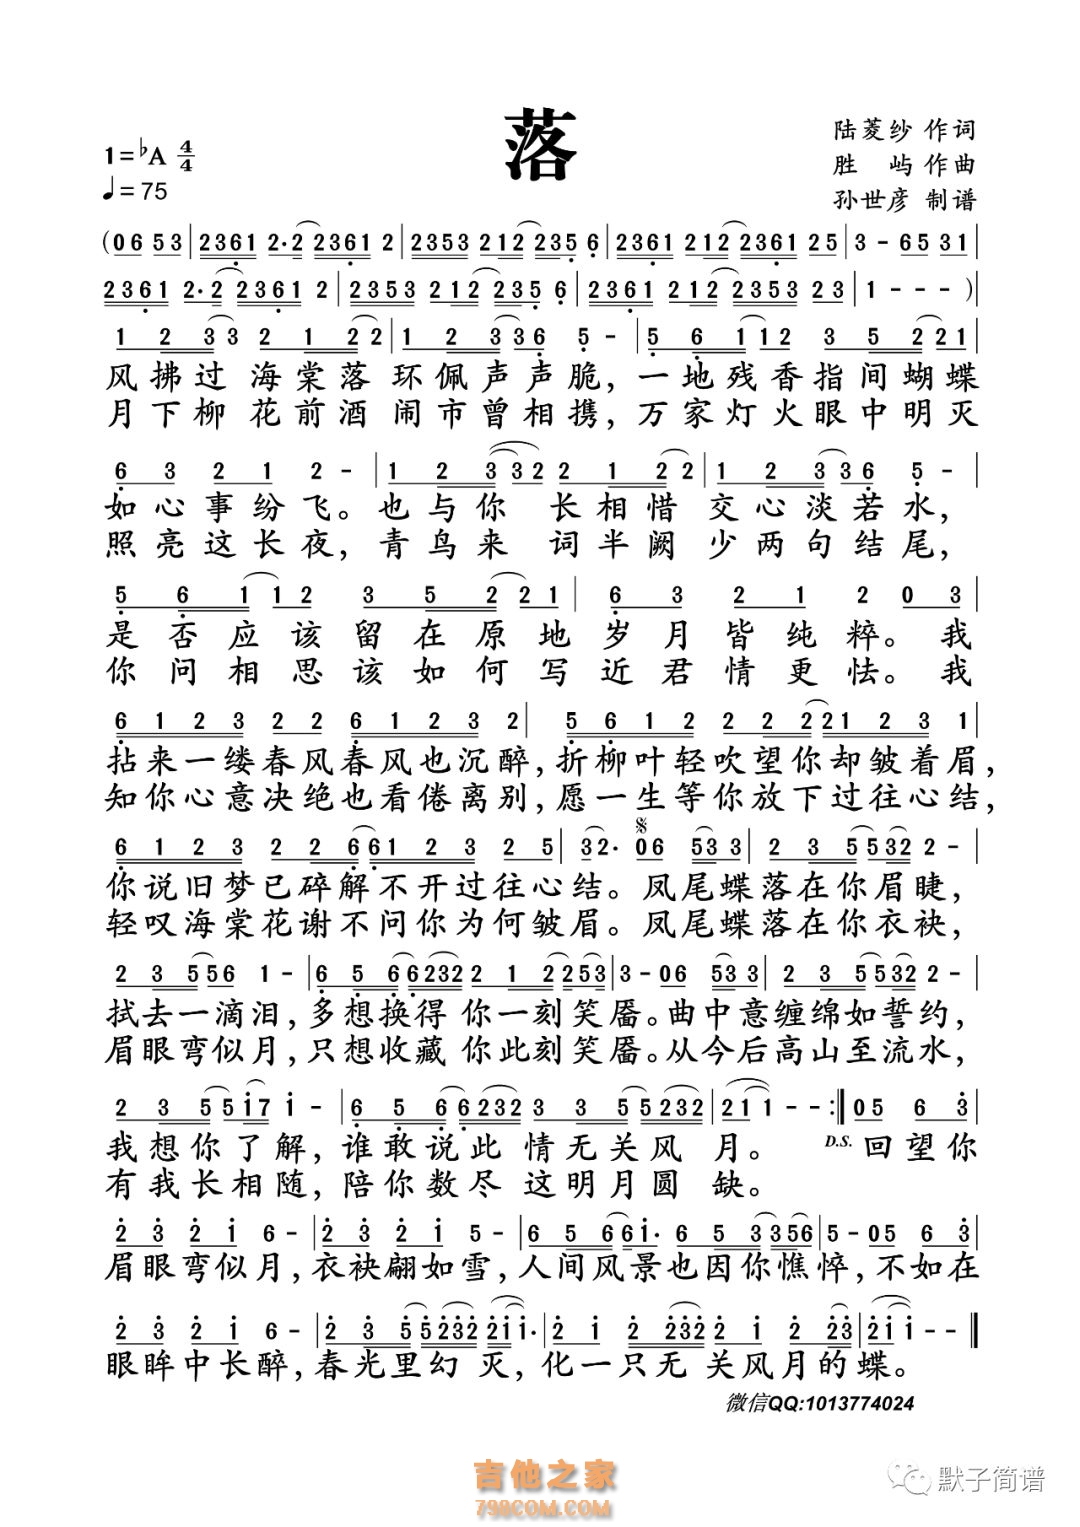 落
1=♭A 4/4
♩=75
陆菱纱 作词
胜 屿 作曲
孙世彦 制谱
(06 53|2361 2·2 2361 2|2353 212 235 6|2361 212 2361 25|3 - 65 31|
2361 2·2 2361 2|2353 212 235 6|2361 212 2353 23|1 - - -)|
1 2 33 2 1 22|1 2 336 5 -|5 6 112 3 5 221|
风拂过海棠落环佩声声脆，一地残香指间蝴蝶
月下柳花前酒闹市曾相携，万家灯火眼中明灭
6 3 2 1 2 -|1 2 3 32 2 1 22|1 2 336 5 -|
如心事纷飞。也与你 长相惜 交心淡若水，
照亮这长夜，青鸟来 词半阙 少两句结尾，
5 6 1 12 3 5 2 21|6 3 2 1 2 0 3|
是否应该留在原地岁月皆纯粹。我
你问相思该如何写近君情更怯。我
6 1 2 3 2 2 6 1 2 3 2|5 6 1 2 2 2 2 21 2 3 1|
拈来一缕春风春风也沉醉，折柳叶轻吹望你却皱着眉，
知你心意决绝也看倦离别，愿一生等你放下过往心结，
6 1 2 3 2 2 6 61 2 3 2 5|32· 𝄋 06 53 3|2 3 5 532 2 -|
你说旧梦已碎解不开过往心结。凤尾蝶落在你眉睫，
轻叹海棠花谢不问你为何皱眉。凤尾蝶落在你衣袂，
2 3 556 1 -|6 5 66232 2 1 2253|3 - 06 53 3|2 3 5 532 2 -|
拭去一滴泪，多想换得 你一刻笑靥。曲中意缠绵如誓约，
眉眼弯似月，只想收藏 你此刻笑靥。从今后高山至流水，
2 3 5517 1 -|6 5 6 6232 3 3 5 5232|21 1 - -:‖05 6 3|
我想你了解，谁敢说此 情无关风 月。 D.S. 回望你
有我长相随，陪你数尽 这明月圆 缺。
2 3 2 1 6 -|2 3 2 1 5 -|6 5 661· 6 5 3356|5 - 05 6 3|
眉眼弯似月，衣袂翩如雪，人间风景也因你憔悴，不如在
2 3 2 1 6 -|2 3 5 5232 21 1·|2 1 2 232 2 1 2 23|21 1 - -‖
眼眸中长醉，春光里幻 灭，化一只无 关风月的蝶。
微信QQ:1013774024
吉他之家
798COM.COM
默子简谱